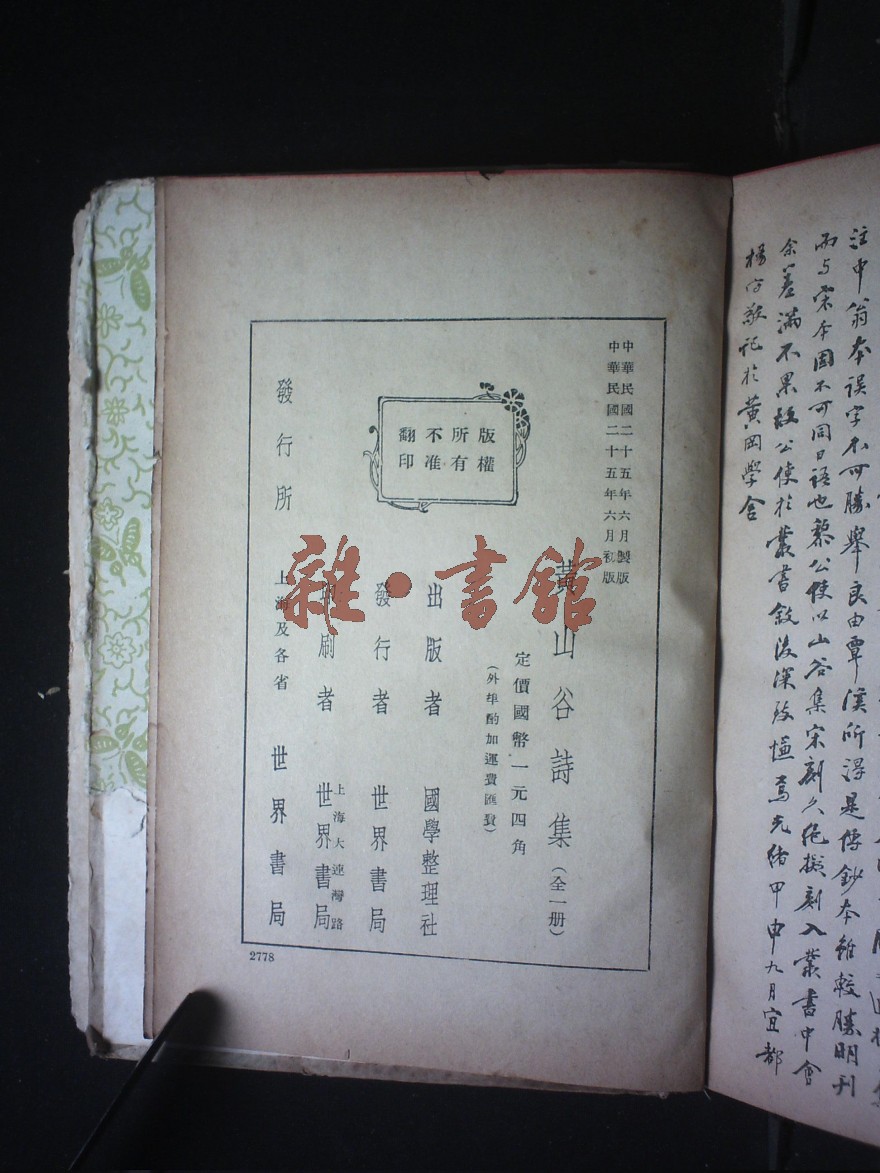 注中翁本誤字不可勝舉良由覃溪所得是傳鈔本雖較勝明刊
而与宋本固不可同日語也黎公使以山谷集宋刻久絕擬刻入叢書中會
余差滿不果故公使於叢書敘後深致慨焉光緒甲申九月宜都
楊守敬記於黃岡學舍
中華民國二十五年六月製版
中華民國二十五年六月初版
黃山谷詩集(全一册)
定價國幣一元四角
(外埠酌加運費匯費)
版權
所有
不准
翻印
出版者 國學整理社
發行者 世界書局
刷者 上海大連灣路 世界書局
發行所 上海及各省 世界書局
2778
雜·書館